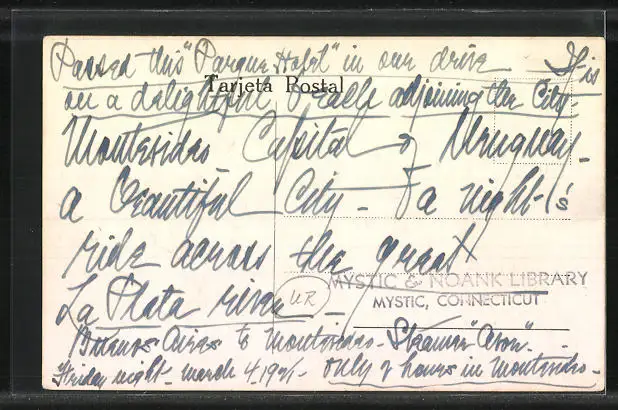 Passed this "Parque Hotel" in our drive — It is
Tarjeta Postal
on a delightful beach adjoining the City -
Montevideo Capital of Uruguay -
a beautiful City - a night's
ride across the great
MYSTIC & NOANK LIBRARY
MYSTIC, CONNECTICUT
La Plata river -
UR
Buenos Aires to Montevideo - Steamer
Friday night - March 4 only 7 hours in Montevideo -